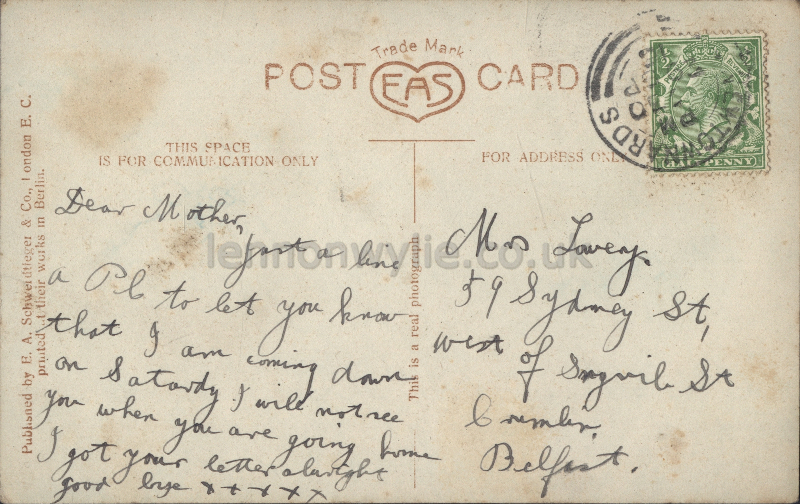 Trade Mark
POST EAS CARD
THIS SPACE
IS FOR COMMUNICATION ONLY
FOR ADDRESS ONLY
Published by E. A. Schwerdtfeger & Co., London E. C.
printed at their works in Berlin.
This is a real photograph
Dear Mother,
Just a line
a PC to let you know
that I am coming down
on Satardy I will not see
you when you are going home
I got your letter alwright
good bye x x x x x
Mrs Lowery.
59 Sydney St,
west of Snugvile St
Crumlin,
Belfast.
PENNY
lennonwylie.co.uk